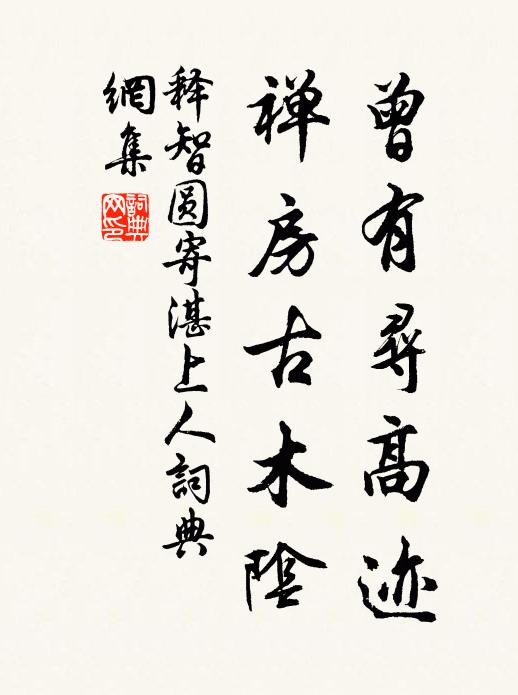 曾有尋高迹
禅房古木陰
释智圆寄湛上人詞典
網集
詞典
网印